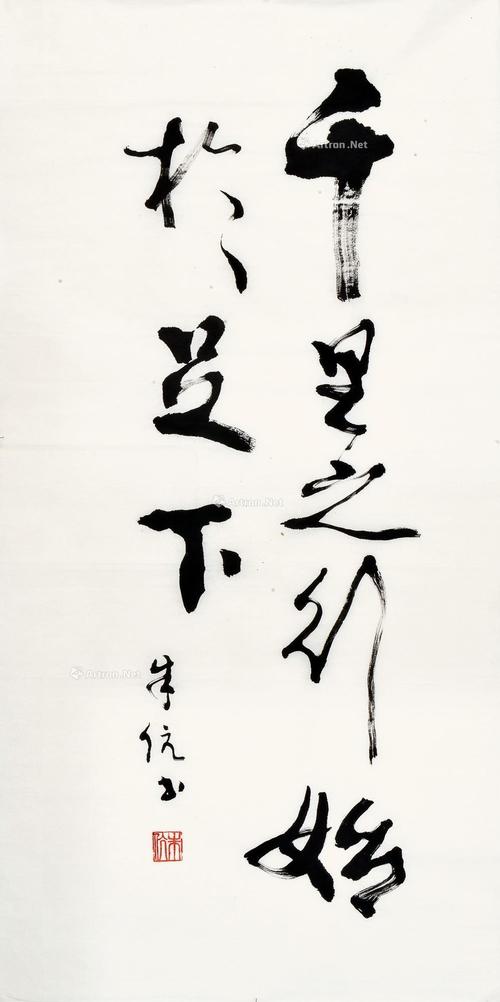 千里之行始
於足下
朱伉书
Artron.Net
Artron.Net
Artron.Net